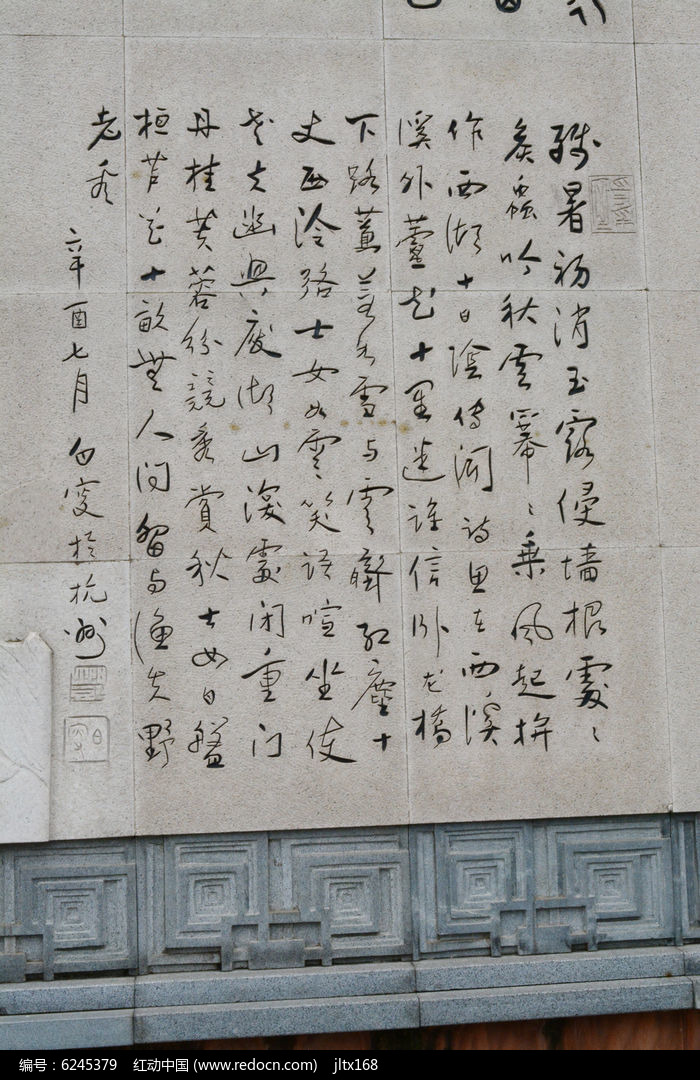 殘暑初消玉露侵墙根處〻
蟲吟秋雲冪〻乘風起拚
作西湖十日陰傳聞詩思在西溪
溪外蘆花十里迷誰信卧龙橋
下路雪与雲齊紅塵十
丈西泠路士女如雲笑語喧坐使
老夫幽興废湖山深處闭重门
丹桂芙蓉纷競秀賞秋士女日盤
桓芦花十畝無人问留与漁夫野
老看
辛酉七月 白叟於杭州
编号：6245379 红动中国 (www.redocn.com) jltx168